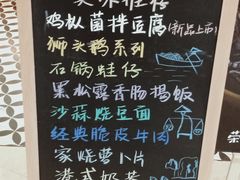 鸡枞菌拌豆腐(新品上市)
狮头鹅系列
石锅蛙仔
黑松露香肠焗饭
沙蒜烧豆面
经典脆皮牛肉
家烧萝卜片
港式奶茶